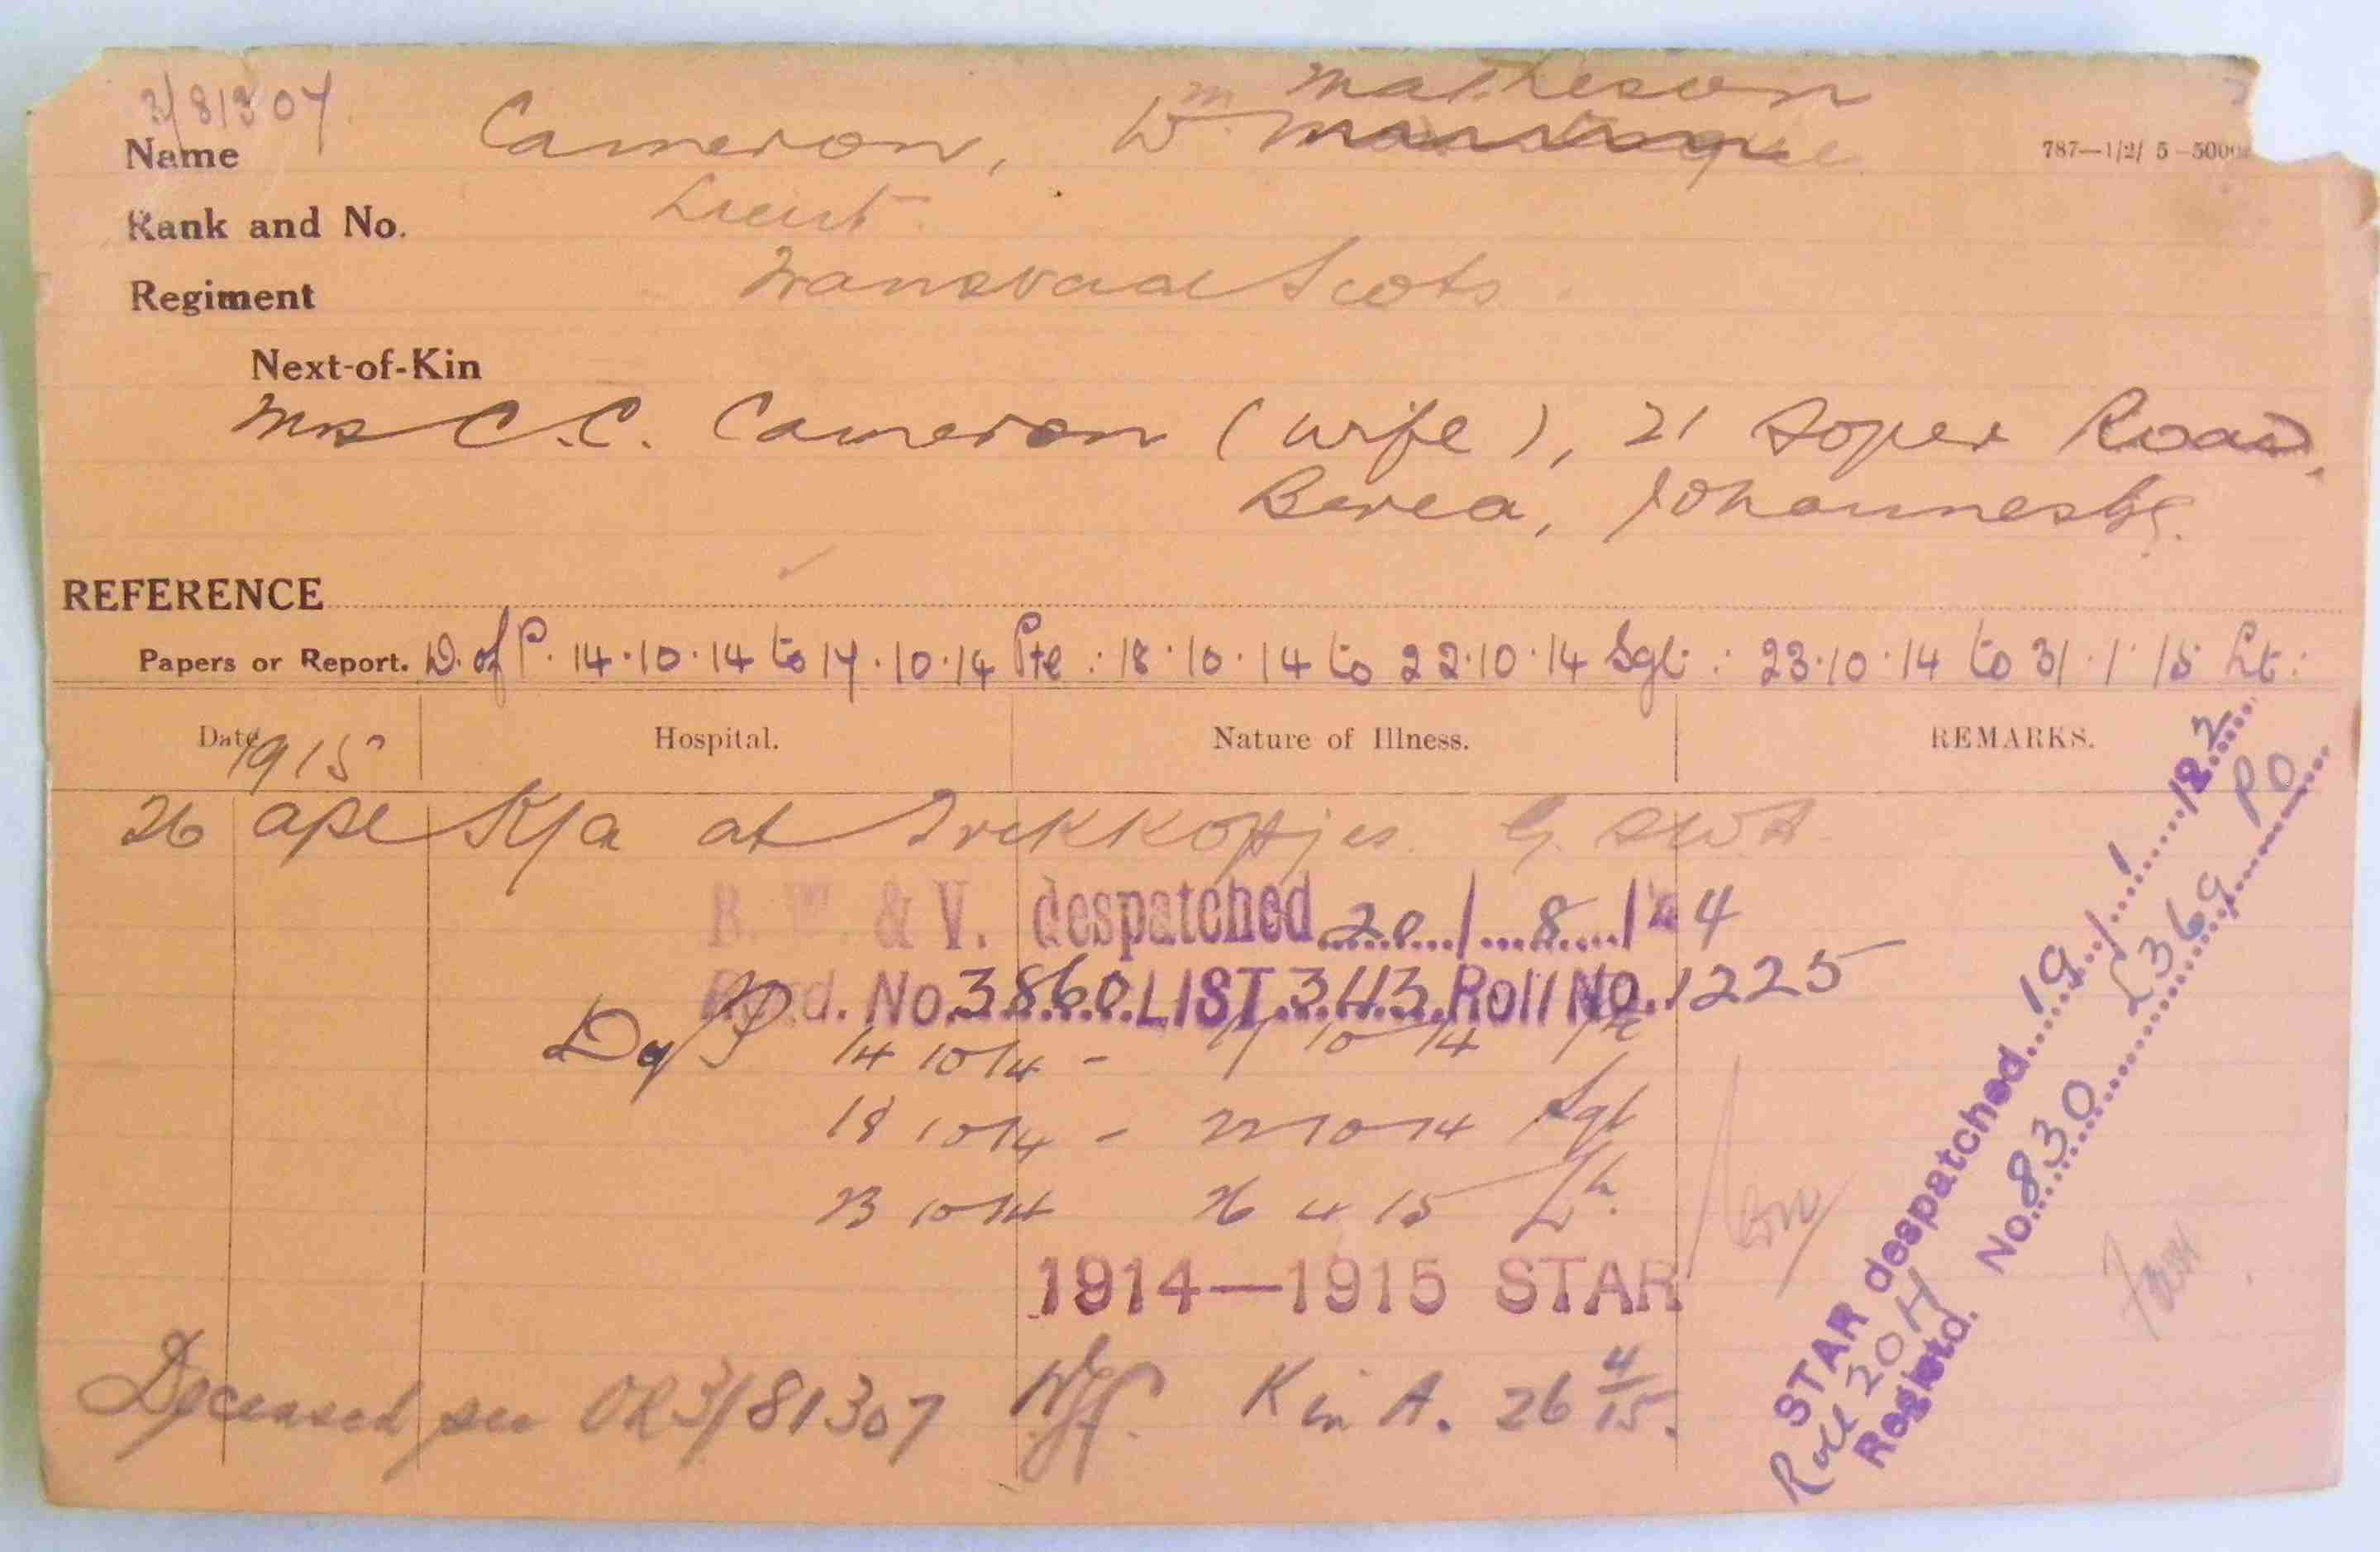 3/81307
Matheson
Name Cameron, Wm
787—1/2/ 5—5000
Rank and No. Lieut.
Regiment Transvaal Scots
Next-of-Kin
Mrs C.C. Cameron (wife), 21 Soper Road,
Berea, Johannesbg.
REFERENCE
Papers or Report. D. of P. 14.10.14 to 17.10.14 Pte : 18.10.14 to 22.10.14 Sgt : 23.10.14 to 31.1.15 Lt :
Date 1915 Hospital. Nature of Illness. REMARKS.
26 Apl K/a at Trekkopjes. G. SWA
B. W. & V. despatched 20/8/24
Regd. No. 3860 LIST 343 Roll No. 1225
D of P 14 10 14 - 17 10 14 Pte
18 10 14 - 22 10 14 Sgt
23 10 14 26 4 15 Lt.
1914—1915 STAR
Deceased per OR3/81307 K in A. 26 4/15.
STAR despatched 19/1/22
Roll 20H £369 PO
Registd. No. 830